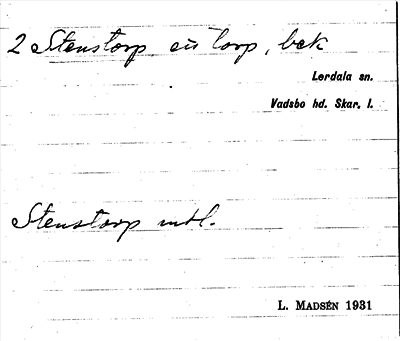 2 Stenstorp, torp, bek
Lerdala sn.
Vadsbo hd. Skar. l.
Stenstorp mtl.
L. MADSÉN 1931